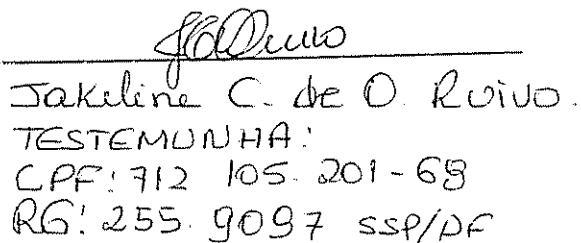 Jakeline C. de O. Ruivo.
TESTEMUNHA:
CPF: 712 105.201-68
RG: 255.9097 SSP/DF